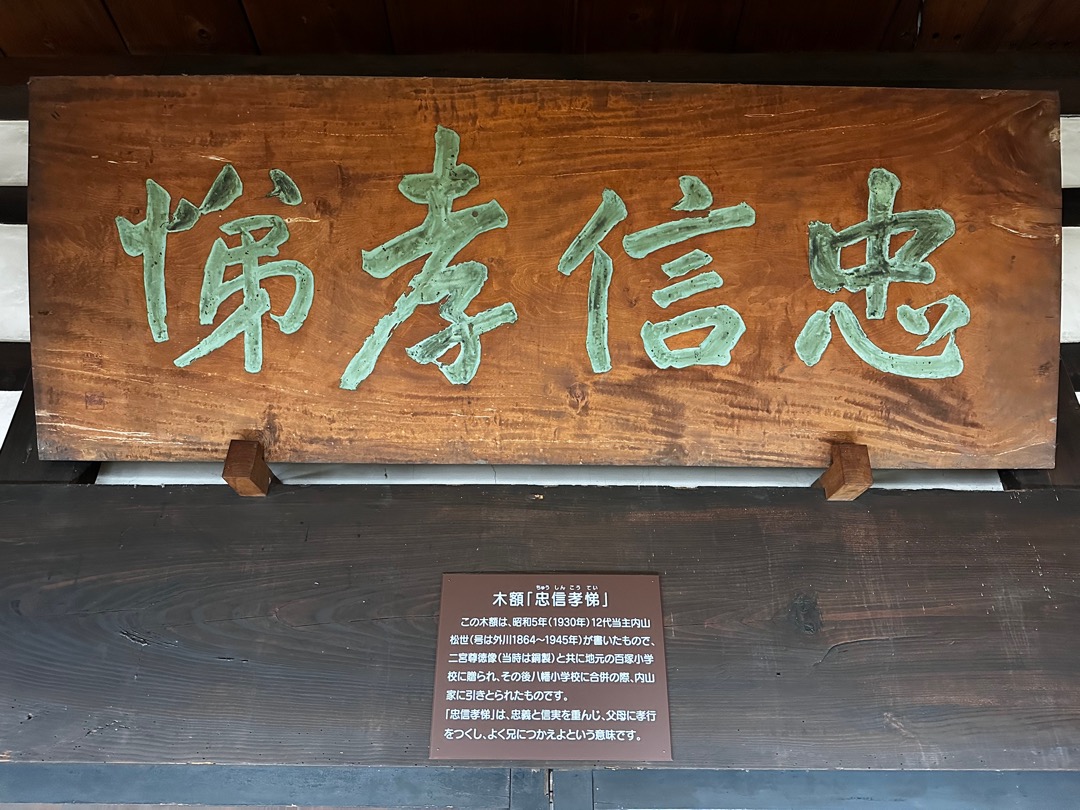 忠信孝悌
ちゅうしんこうてい
木額「忠信孝悌」
この木額は、昭和5年(1930年)12代当主内山
松世(号は外川1864～1945年)が書いたもので、
二宮尊徳像(当時は銅製)と共に地元の百塚小学
校に贈られ、その後八幡小学校に合併の際、内山
家に引きとられたものです。
「忠信孝悌」は、忠義と信実を重んじ、父母に孝行
をつくし、よく兄につかえよという意味です。